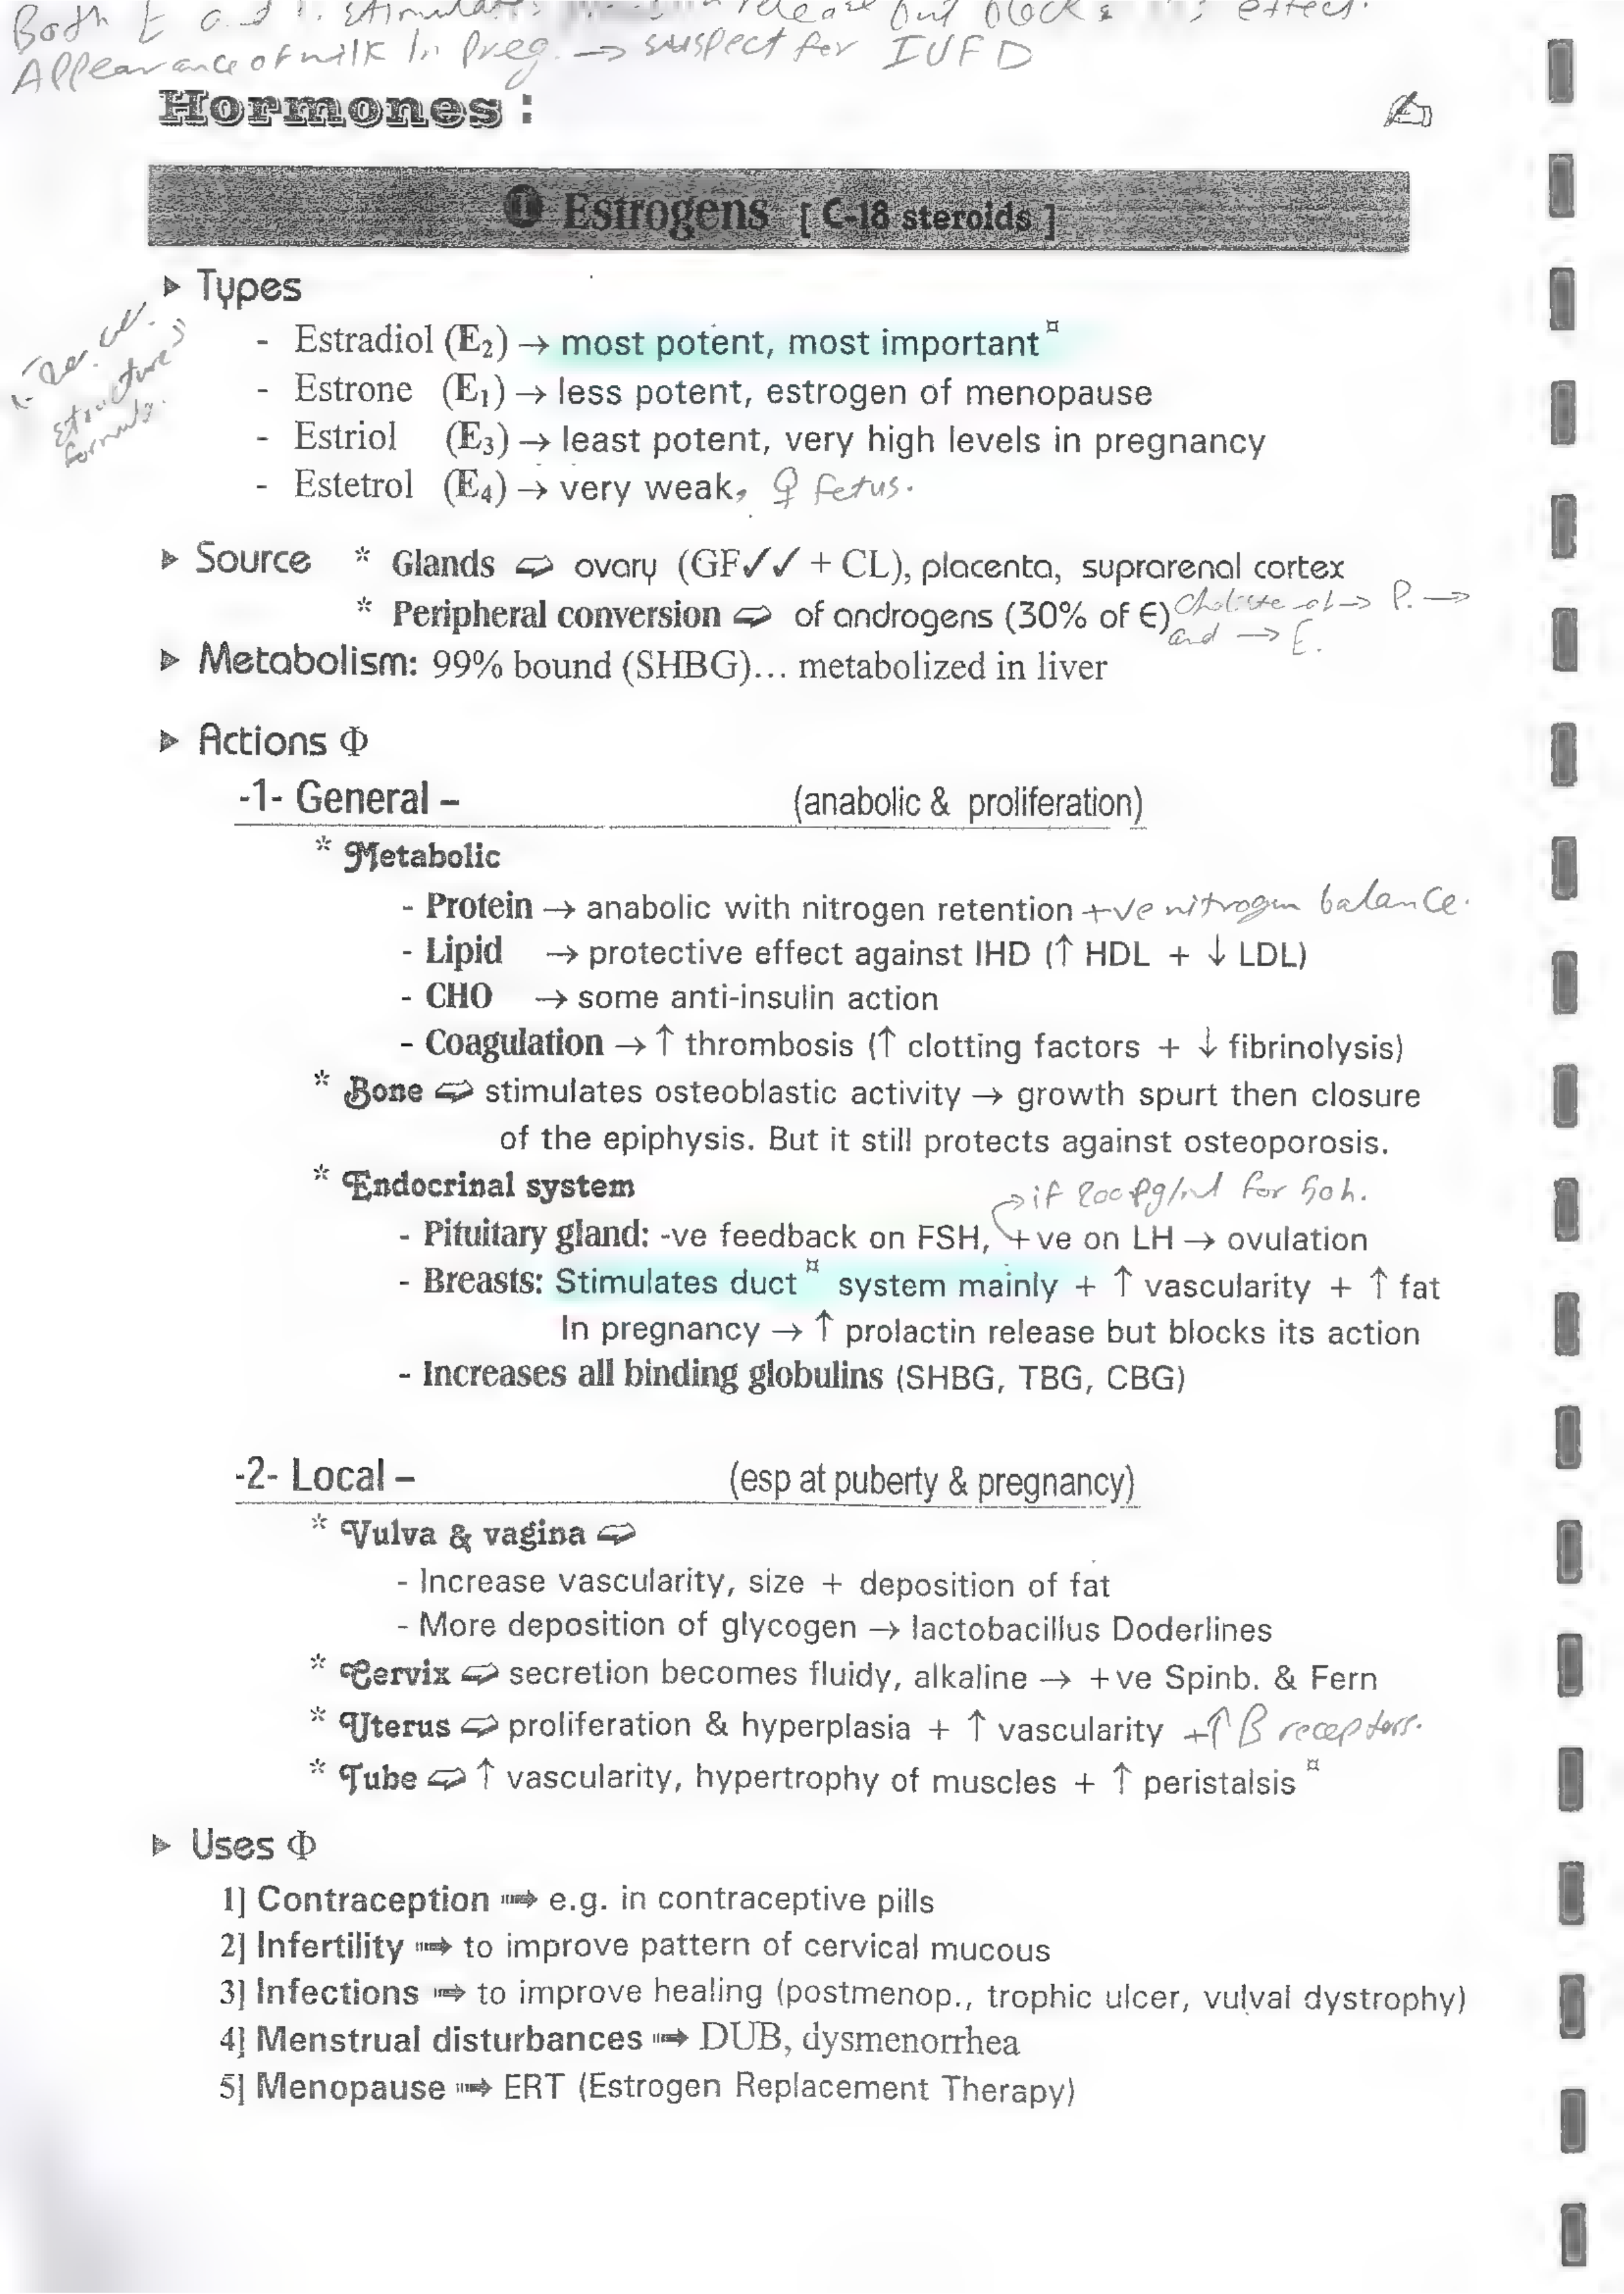 Both E and P. stimulate release but block its effect.
Appearance of milk In Preg. → suspect for IUFD
Hormones :
❶ Estrogens [ C-18 steroids ]
▸ Types
- Estradiol (E₂) → most potent, most important ¤
- Estrone (E₁) → less potent, estrogen of menopause
- Estriol (E₃) → least potent, very high levels in pregnancy
- Estetrol (E₄) → very weak, ♀ fetus.
structure
▸ Source * Glands ⇨ ovary (GF✓✓ + CL), placenta, suprarenal cortex
* Peripheral conversion ⇨ of androgens (30% of Є)
→ P. →
and → E.
▸ Metabolism: 99% bound (SHBG)... metabolized in liver
▸ Actions Φ
-1- General – (anabolic & proliferation)
* Metabolic
- Protein → anabolic with nitrogen retention +ve nitrogen balance.
- Lipid → protective effect against IHD (↑ HDL + ↓ LDL)
- CHO → some anti-insulin action
- Coagulation → ↑ thrombosis (↑ clotting factors + ↓ fibrinolysis)
* Bone ⇨ stimulates osteoblastic activity → growth spurt then closure
of the epiphysis. But it still protects against osteoporosis.
* Endocrinal system
→ if 200 Pg/ml for 50h.
- Pituitary gland: -ve feedback on FSH, +ve on LH → ovulation
- Breasts: Stimulates duct ¤ system mainly + ↑ vascularity + ↑ fat
In pregnancy → ↑ prolactin release but blocks its action
- Increases all binding globulins (SHBG, TBG, CBG)
-2- Local – (esp at puberty & pregnancy)
* Vulva & vagina ⇨
- Increase vascularity, size + deposition of fat
- More deposition of glycogen → lactobacillus Doderlines
* Cervix ⇨ secretion becomes fluidy, alkaline → +ve Spinb. & Fern
* Uterus ⇨ proliferation & hyperplasia + ↑ vascularity +↑ B receptors.
* Tube ⇨ ↑ vascularity, hypertrophy of muscles + ↑ peristalsis ¤
▸ Uses Φ
1] Contraception ➟ e.g. in contraceptive pills
2] Infertility ➟ to improve pattern of cervical mucous
3] Infections ➟ to improve healing (postmenop., trophic ulcer, vulval dystrophy)
4] Menstrual disturbances ➟ DUB, dysmenorrhea
5] Menopause ➟ ERT (Estrogen Replacement Therapy)